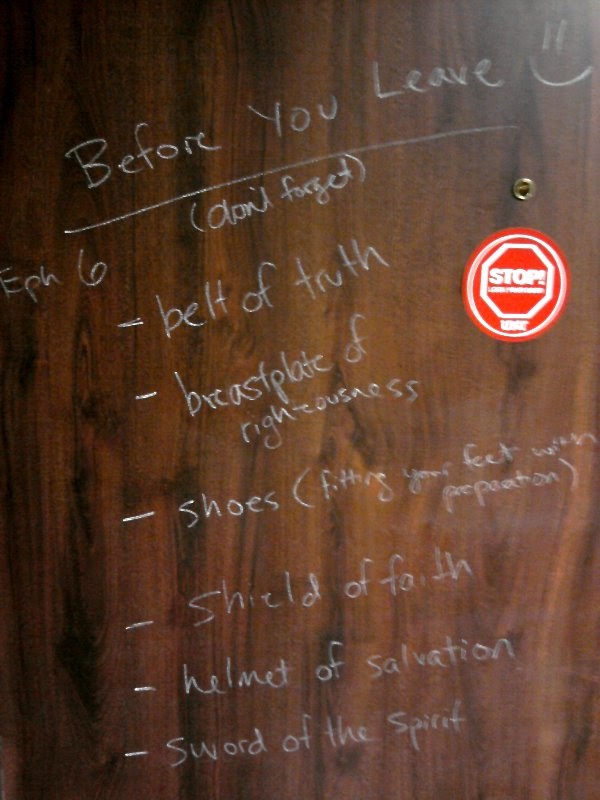 Before You Leave
(don't forget)
Eph 6
- belt of truth
STOP!
- breastplate of
righteousness
- shoes (fitting your feet with
preparation)
- shield of faith
- helmet of salvation
- sword of the spirit